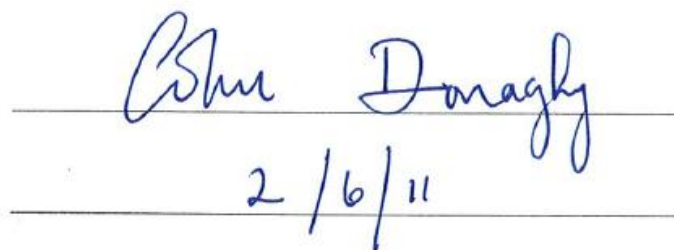 Colm Donaghy
2/6/11